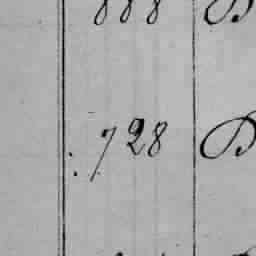 888 B
728 B